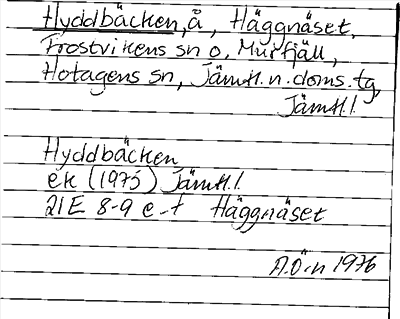 Hyddbäcken, å, Häggnäset,
Frostvikens sn o. Murfjäll,
Hotagens sn, Jämtl. n. doms. tg,
Jämtl. l.
Hyddbäcken
ek (1975) Jämtl. l.
21E 8-9 e-f Häggnäset
A.Ö-n 1976